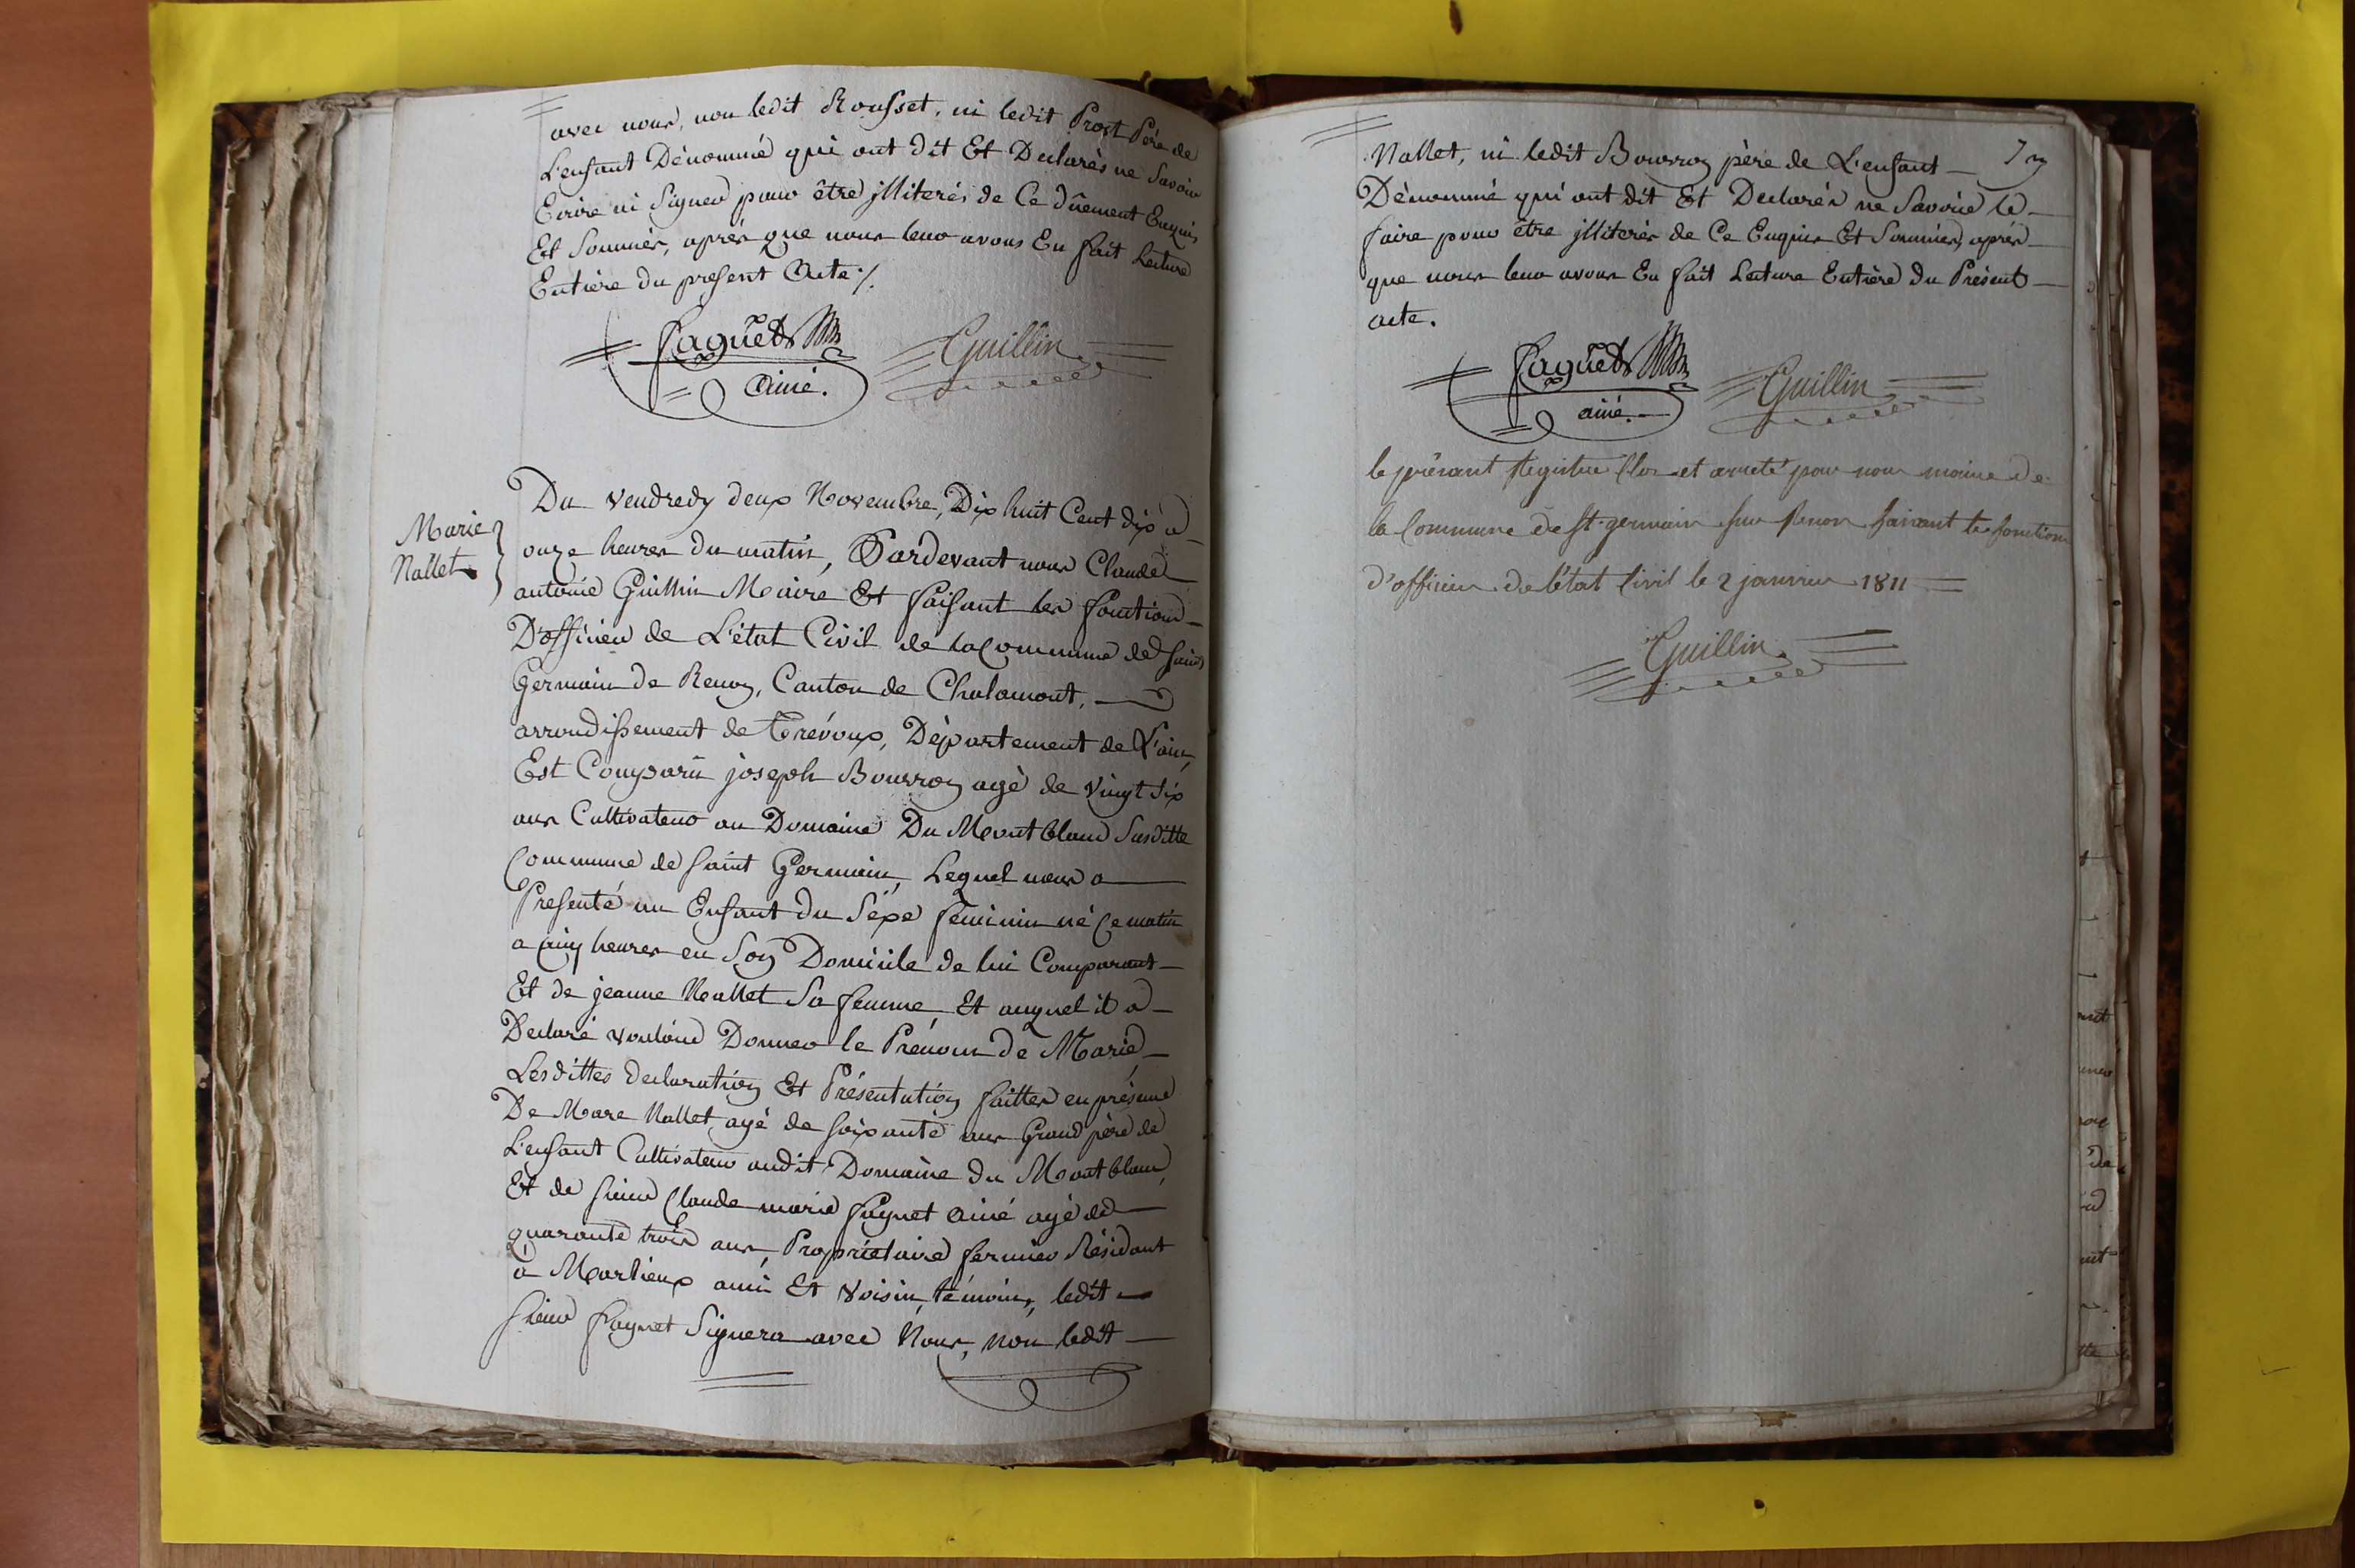 avec nous, non ledit Rousset, ni ledit Prost Père de
L'enfant Dénommé qui ont dit Et Declarés ne Savoir
Ecrire ni Signer pour être illiterés de Ce dûement Enquis
Et Sommés, après que nous leur avons En fait Lecture
Entiere du present Acte ./.
Faguet
Ainé.
Guillin
Marie
Nallet
Du Vendredy deux Novembre, Dix huit Cent dix a
onze heures du matin, Pardevant nous Claude
antoine Guillin Maire Et faisant les fonctions
D'officier de L'état Civil de la Commune de Saint
Germain de Renon, Canton de Chalamont,
arrondissement de Trévoux, Département de L'ain,
Est Comparu joseph Bourron agé de vingt Six
ans Cultivateur au Domaine Du Montblanc Susditte
Commune de Saint Germain, Lequel nous a
Presenté un Enfant du Séxe féminin né Ce matin
a cinq heures en Son Domicile de lui Comparant
Et de jeanne Nallet Sa femme, Et auquel il a
Declaré vouloir Donner le Prénom de Marie,
Lesdittes declaration Et Présentation faittes en présence
De Marc Nallet, agé de soixante ans Grand père de
L'enfant Cultivateur audit Domaine du Montblanc,
Et de Sieur Claude marie faguet ainé agé de
quarante trois ans, Propriétaire fermier Résidant
à Marlieux ami Et Voisin, témoins, ledit
Sieur faguet Signera avec Nous, non ledit
Nallet, ni ledit Bourron père de L'enfant
Dénommé qui ont dit Et Declarés ne Savoir le
faire pour être illiterés de Ce Enquis Et Sommés, après
que nous leur avons En fait Lecture Entière du Présent
acte.
Faguet
ainé.
Guillin
le présant Registre Clos et arreté par nous maire de
la Commune de St. germain sur Renon faisant les fonctions
d'officier de l'état Civil le 2 janvier 1811
Guillin